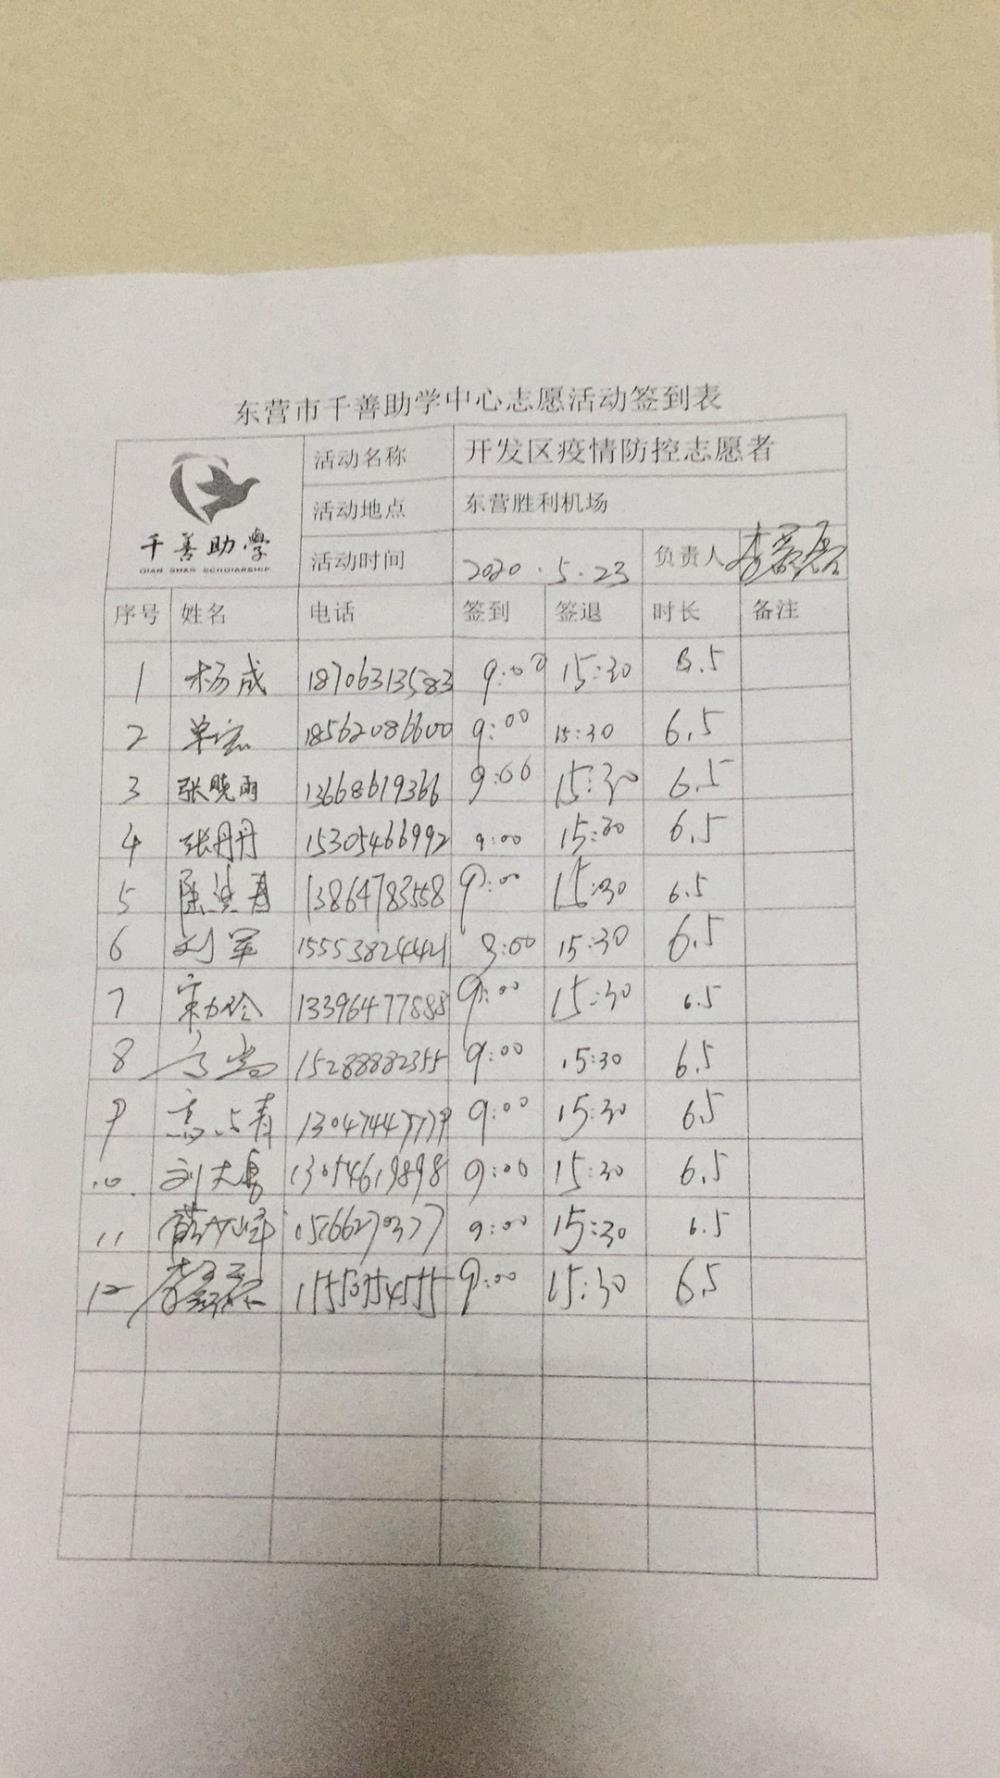 东营市千善助学中心志愿活动签到表
千善助學
QIAN SHAN SCHOLARSHIP
活动名称 开发区疫情防控志愿者
活动地点 东营胜利机场
活动时间 2020.5.23 负责人
序号 姓名 电话 签到 签退 时长 备注
1 杨成 18706313583 9:00 15:30 6.5
2 单宏 18562086600 9:00 15:30 6.5
3 张晓雨 13668619366 9:00 15:30 6.5
4 张丹丹 15305466992 9:00 15:30 6.5
5 13864783558 9:00 15:30 6.5
6 刘军 15553824421 9:00 15:30 6.5
7 13396477888 9:00 15:30 6.5
8 15288882355 9:00 15:30 6.5
9 13047447779 9:00 15:30 6.5
10 刘大勇 13054619898 9:00 15:30 6.5
11 9:00 15:30 6.5
12 15553754555 9:00 15:30 6.5